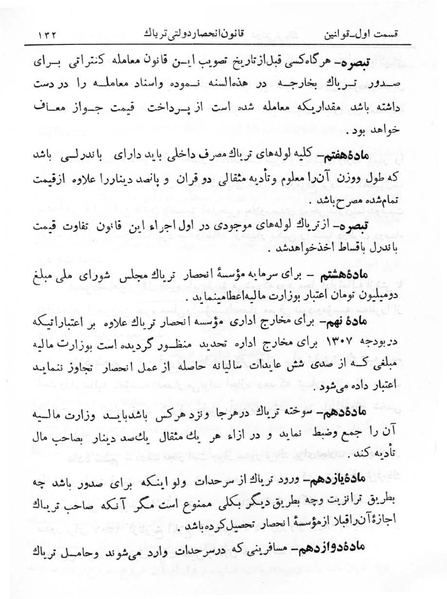 قسمت اول-قوانین قانون انحصار دولتی تریاک ۱۳۲
تبصره- هرگاه کسی قبل از تاریخ تصویب ایـن قانون معامله کنتراتی برای
صدور تریاک بخارجه در هذه السنه نموده واسناد معاملـه را در دست
داشته باشد مقداریکه معامله شده است از پرداخت قیمت جـواز معـاف
خواهد بود .
مادهٔ هفتم- کلیه لوله‌های تریاك مصرف داخلی باید دارای باندرلـی باشد
که طول ووزن آن را معلوم وتأدیه مثقالی دوقران و پانصد دیناررا علاوه ازقیمت
تمام شده مصرح باشد .
تبصره - ازتریاك لوله‌های موجودی در اول اجراء این قانون تفاوت قیمت
باندرل باقساط اخذخواهدشد .
مادهٔ هشتم - برای سرمایه مؤسسهٔ انحصار تریاك مجلس شورای ملی مبلغ
دومیلیون تومان اعتبار بوزارت مالیه اعطا مینماید .
مادهٔ نهم- برای مخارج اداری مؤسسه انحصار تریاك علاوه بر اعتباراتیکه
دربودجه ۱۳۰۷ برای مخارج اداره تحدید منظـور گردیده است بوزارت مالیه
مبلغی کـه از صدی شش عایدات سالیانه حاصله از عمل انحصار تجاوز ننمایـد
اعتبار داده می‌شود .
مادهٔ دهم- سوخته تریاك درهرجا ونزد هرکس باشد بایـد وزارت مالیـه
آن را جمع وضبط نماید و در ازاء هر یك مثقال یك صد دینار بصاحب مال
تأدیه کند .
مادهٔ یازدهم- ورود تریاك از سرحدات ولو اینکه برای صدور باشد چه
بطریق ترانزیت وچه بطریق دیگر بکلی ممنوع است مگـر آنکه صاحب تریاك
اجازهٔ آن را قبلا از مؤسسهٔ انحصار تحصیل کرده باشد .
مادهٔ دوازدهم- مسافرینی که درسرحدات وارد می‌شوند وحامـل تریاك